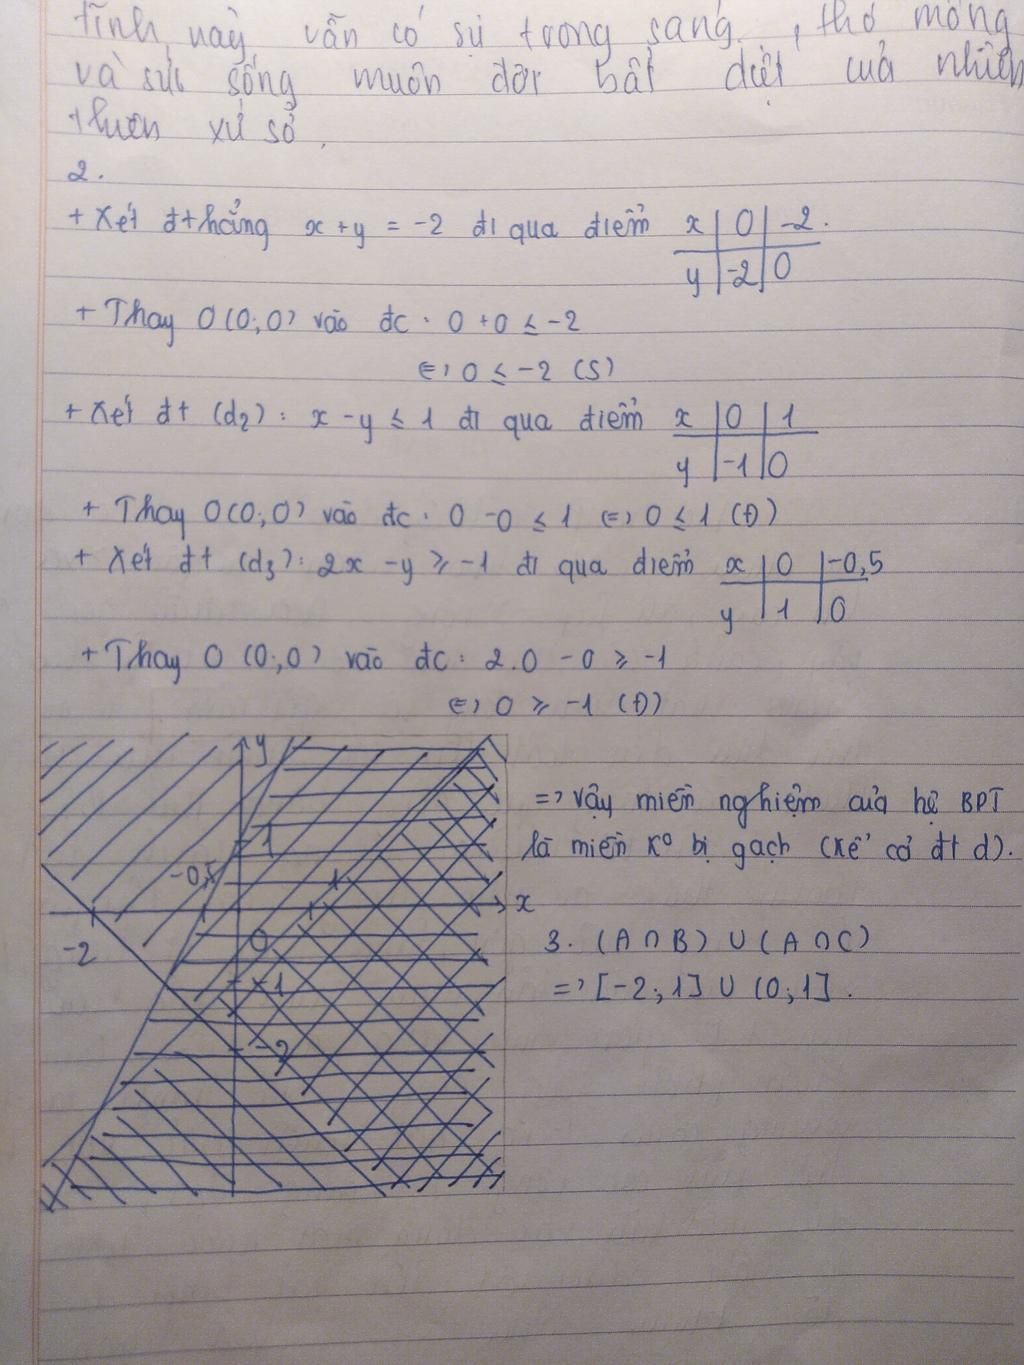 tĩnh này vẫn có sự trong sáng, thơ mộng
và sức sống muôn đời bất diệt của nhiên
thiên xứ sở.
2.
+ Xét đthẳng x + y = -2 đi qua điểm x | 0 | -2.
y | -2 | 0
+ Thay O(0;0) vào đc: 0 + 0 ≤ -2
⇔ 0 ≤ -2 (S)
+ Xét đt (d₂): x - y ≤ 1 đi qua điểm x | 0 | 1
y | -1 | 0
+ Thay O(0;0) vào đc: 0 - 0 ≤ 1 ⇔ 0 ≤ 1 (Đ)
+ Xét đt (d₃): 2x - y ≥ -1 đi qua điểm x | 0 | -0,5
y | 1 | 0
+ Thay O (0;0) vào đc: 2.0 - 0 ≥ -1
⇔ 0 ≥ -1 (Đ)
y
1
-0,5
1
x
-2
0
-1
-2
=> Vậy miền nghiệm của hệ BPT
là miền k° bị gạch (kể cả đt d).
3. (A ∩ B) ∪ (A ∩ C)
=> [-2;1] ∪ (0;1].